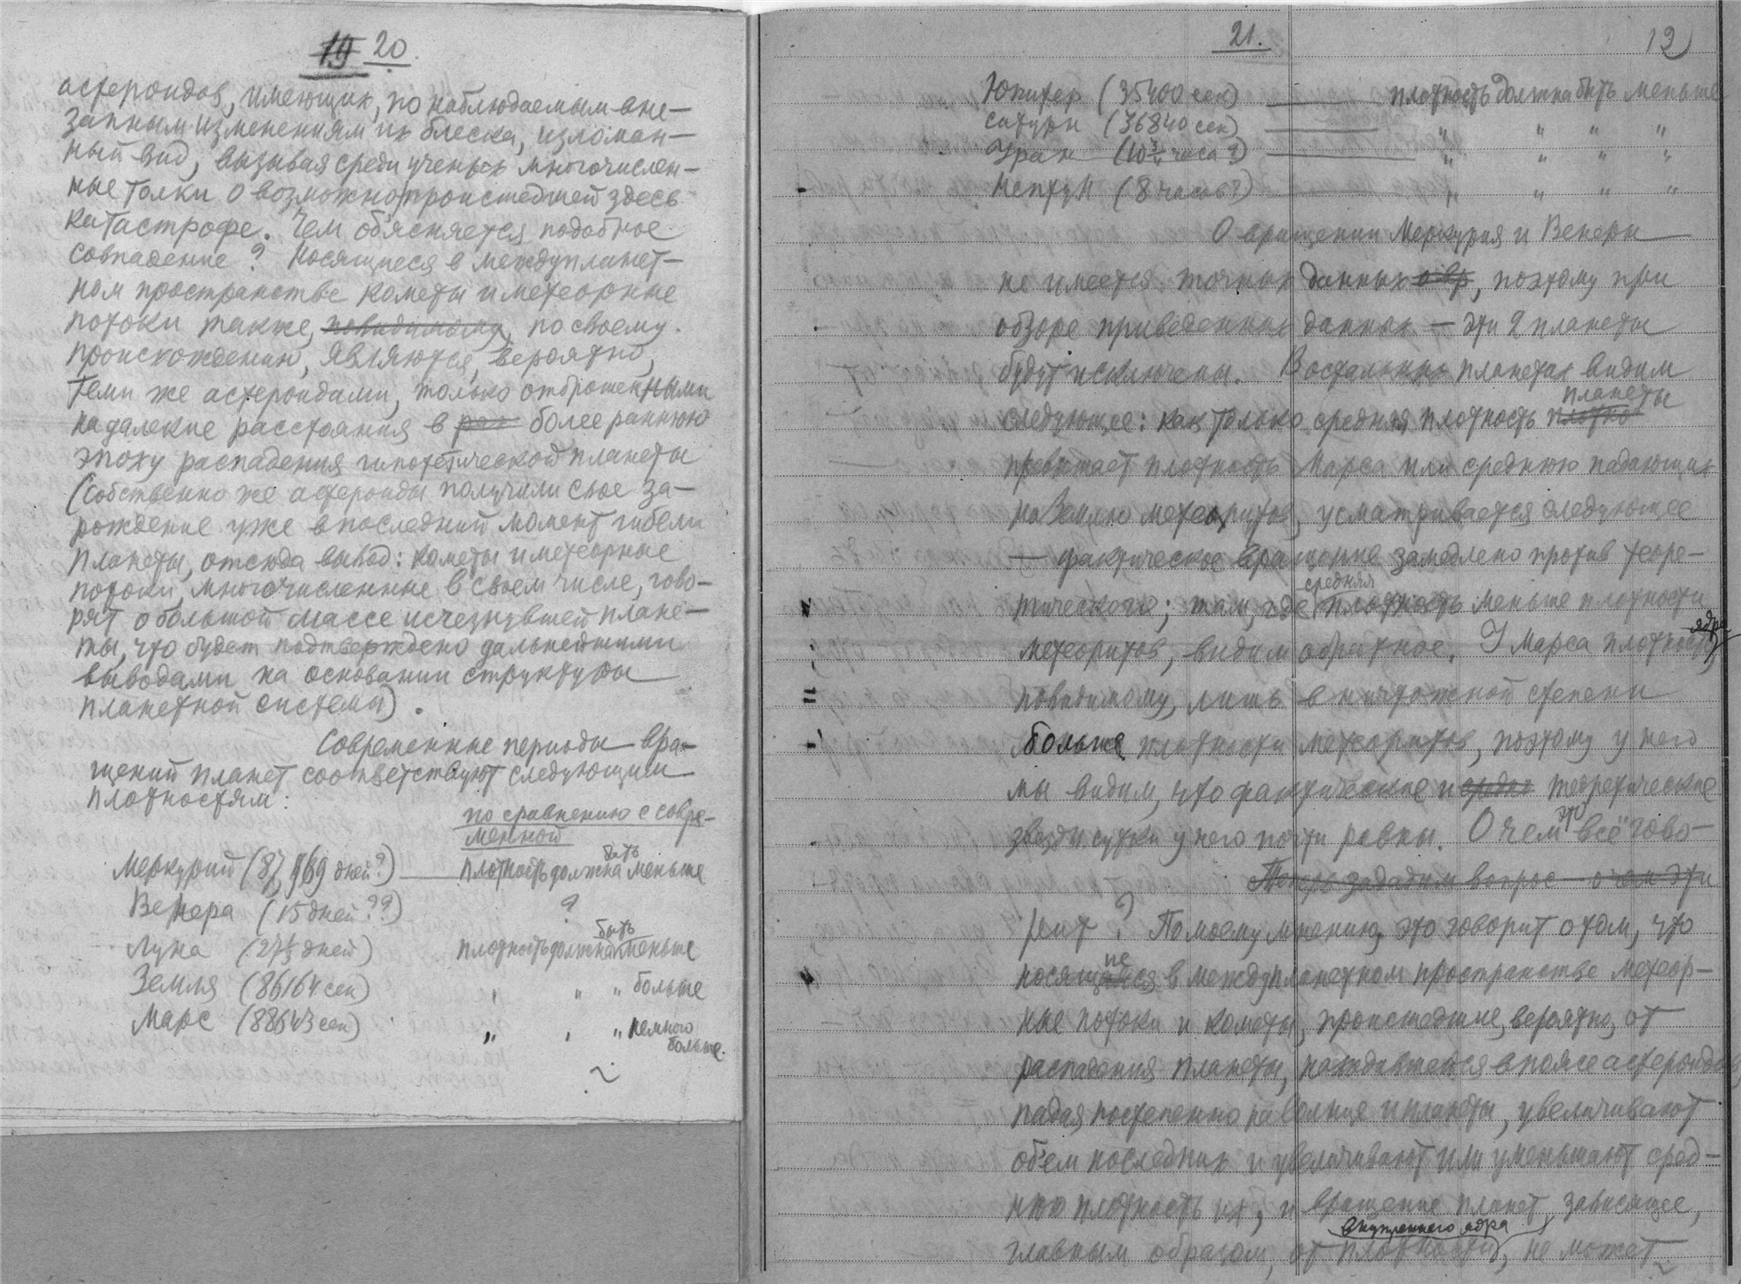 19 20.
астероидов, имеющих, по наблюдаемым вне-
запным изменениям их блеска, изломан-
ный вид, вызывая среди ученых многочислен-
ные толки о возможно происшедшей здесь
катастрофе. Чем объясняется подобное
совпадение? Носящиеся в междупланет-
ном пространстве кометы и метеорные
потоки также, повидимому, по своему
происхождению, являются, вероятно,
теми же астероидами, только отброшенными
на далекие расстояния в более раннюю
эпоху распадения гипотетической планеты
(собственно же астероиды получили свое за-
рождение уже в последний момент гибели
планеты, отсюда вывод: кометы и метеорные
потоки, многочисленные в своем числе, гово-
рят о большой массе исчезнувшей плане-
ты, что будет подтверждено дальнейшими
выводами на основании структуры
планетной системы).
Современные периоды вра-
щений планет соответствуют следующим
плотностям:
по сравнению с совре-
менной
Меркурий (87,969 дней?) — плотность должна быть меньше
Венера (15 дней??) ?
Луна (27⅓ дней) плотность должна быть меньше
Земля (86164 сек) " " " больше
Марс (88643 сек) " " " немного
больше.
21. 12
Юпитер (35400 сек) — плотность должна быть меньше
Сатурн (36840 сек) — " " " "
Уран (10¾ часа?) — " " " "
Нептун (8 часов?) " " " "
О вращении Меркурия и Венеры
не имеется точных данных о вр, поэтому при
обзоре приведенных данных — эти 2 планеты
будут исключены. В остальных планетах видим
планеты
следующее: как только средняя плотность плотно
превышает плотность Марса или среднюю падающих
на Землю метеоритов, усматривается следующее
— фактическое вращение замедлено против теоре-
средняя
тического; там, где плотность меньше плотности
ядра
метеоритов, видим обратное. У Марса плотность,
повидимому, лишь в ничтожной степени
больше плотности метеоритов, поэтому у него
мы видим, что фактические и теоретические
это
звездн сутки у него почти равны. О чем всё гово-
Теперь зададим вопрос о чем эти
рит? По моему мнению, это говорит о том, что
ие
носящиеся в междупланетном пространстве метеор-
ные потоки и кометы, происшедшие, вероятно, от
распадения планеты, находившейся в поясе астероидов,
падая постепенно на Солнце и планеты, увеличивают
объем последних и увеличивают или уменьшают сред-
нюю плотность их, и вращение планет, зависящее,
внутреннего ядра
главным образом, от плотности, не может